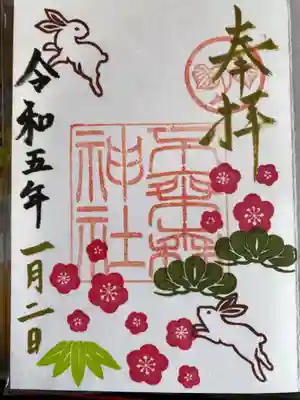 奉拝
神社
令和五年
一月二日